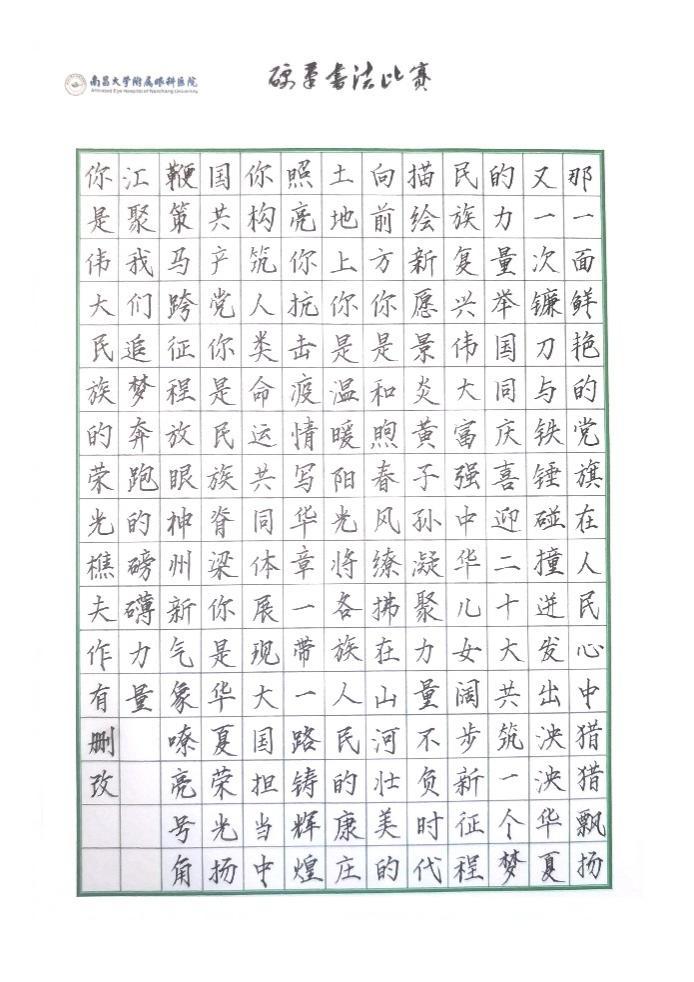 南昌大学附属眼科医院
Affiliated Eye Hospital of Nanchang University
硬笔书法比赛
那一面鲜艳的党旗在人民心中猎猎飘扬
又一次镰刀与铁锤碰撞迸发出泱泱华夏
的力量举国同庆喜迎二十大共筑一个梦
民族复兴伟大富强中华儿女阔步新征程
描绘新愿景炎黄子孙凝聚力量不负时代
向前方你是和煦春风缭拂在山河壮美的
土地上你是温暖阳光将各族人民的康庄
照亮你抗击疫情写华章一带一路铸辉煌
你构筑人类命运共同体展现大国担当中
国共产党你是民族脊梁你是华夏荣光扬
鞭策马跨征程放眼神州新气象嘹亮号角
江聚我们追梦奔跑的磅礴力量
你是伟大民族的荣光樵夫作有删改